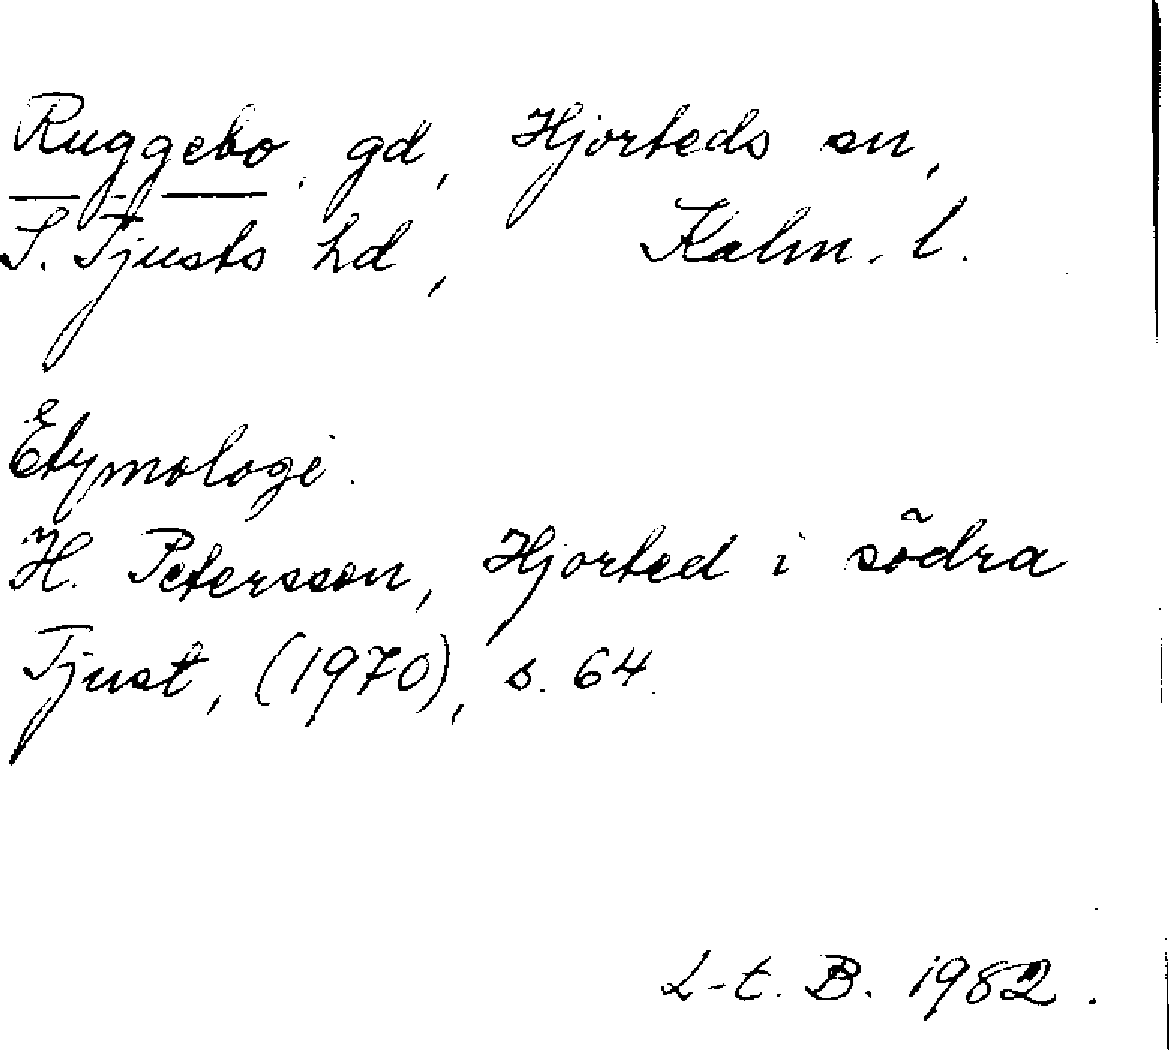 Ruggebo, gd, Hjorteds sn,
S. Tjusts hd, Kalm. l.
Etymologi.
H. Petersson, Hjorted i södra
Tjust, (1970), s. 64.
L-t. B. 1982.